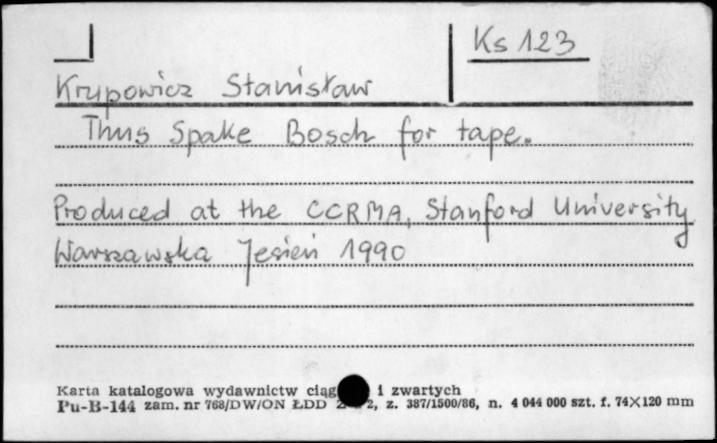 Ks 123
Krupowicz Stanisław
Thus Spake Bosch for tape.
Produced at the CCRMA, Stanford University
Warszawska Jesień 1990
Karta katalogowa wydawnictw i zwartych
Pu-B-144 zam. nr 768/DW/ON ŁDD z. 387/1500/86, n. 4 044 000 szt. f. 74X120 mm